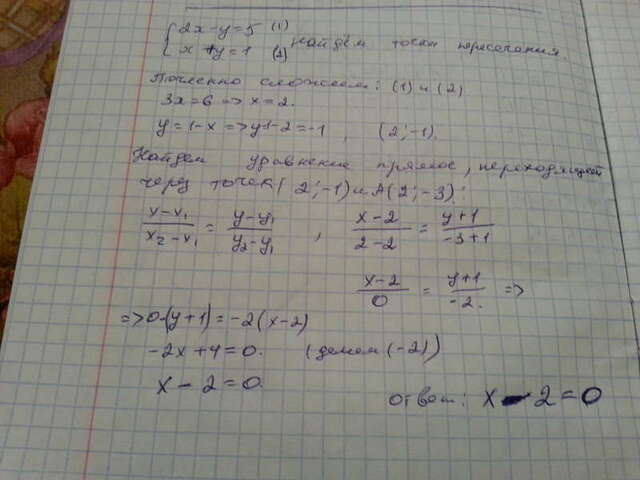 { 2x-y=5 (1)
x+y=1 (2) Найдём точки пересечения.
Почленно сложем: (1) и (2)
3x=6 => x=2.
y=1-x => y=1-2=-1, (2;-1).
Найдем уравнение прямое, переходящей
через точек (2;-1) и A(2;-3):
(x-x₁)/(x₂-x₁) = (y-y₁)/(y₂-y₁), (x-2)/(2-2) = (y+1)/(-3+1)
(x-2)/0 = (y+1)/-2. =>
=> 0·(y+1) = -2(x-2)
-2x+4=0. (делем (-2))
x-2=0.
Ответ: x-2=0